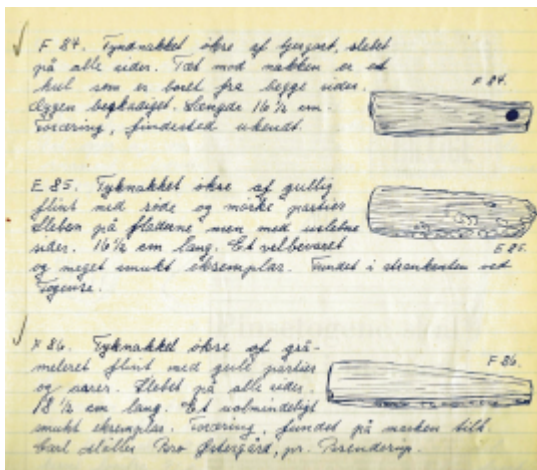 F 84. Tyndnakket økse af bjergart, slebet
på alle sider. Tæt mod nakken er et
hul som er boret fra begge sider.
Æggen beskadiget. Længde 16 ½ cm.
Foræring, findested ukendt.
F 84.
E 85. Tyknakket økse af gullig
flint med røde og mørke partier
Sleben på fladerne men med uslebne
sider. 16 ½ cm lang. Et velbevaret
og meget smukt eksemplar. Fundet i strandkanten ved
E 85.
X 86. Tyknakket økse af grå-
meleret flint med gule partier
og Slebet på alle sider.
18 ½ cm lang. Et ualmindeligt
smukt eksemplar. Foræring, fundet på marken tilh.
Carl Møller Bro Østergård, pr. Brenderup.
F 86.